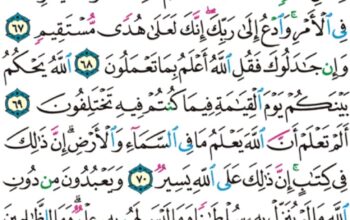 فِى ٱلْأَمْرِ ۚ وَٱدْعُ إِلَىٰ رَبِّكَ ۖ إِنَّكَ لَعَلَىٰ هُدًى مُّسْتَقِيمٍ ٦٧
وَإِن جَٰدَلُوكَ فَقُلِ ٱللَّهُ أَعْلَمُ بِمَا تَعْمَلُونَ ٦٨ ٱللَّهُ يَحْكُمُ
بَيْنَكُمْ يَوْمَ ٱلْقِيَٰمَةِ فِيمَا كُنتُمْ فِيهِ تَخْتَلِفُونَ ٦٩
أَلَمْ تَعْلَمْ أَنَّ ٱللَّهَ يَعْلَمُ مَا فِى ٱلسَّمَآءِ وَٱلْأَرْضِ ۗ إِنَّ ذَٰلِكَ
فِى كِتَٰبٍ ۚ إِنَّ ذَٰلِكَ عَلَى ٱللَّهِ يَسِيرٌ ٧٠ وَيَعْبُدُونَ مِن دُونِ